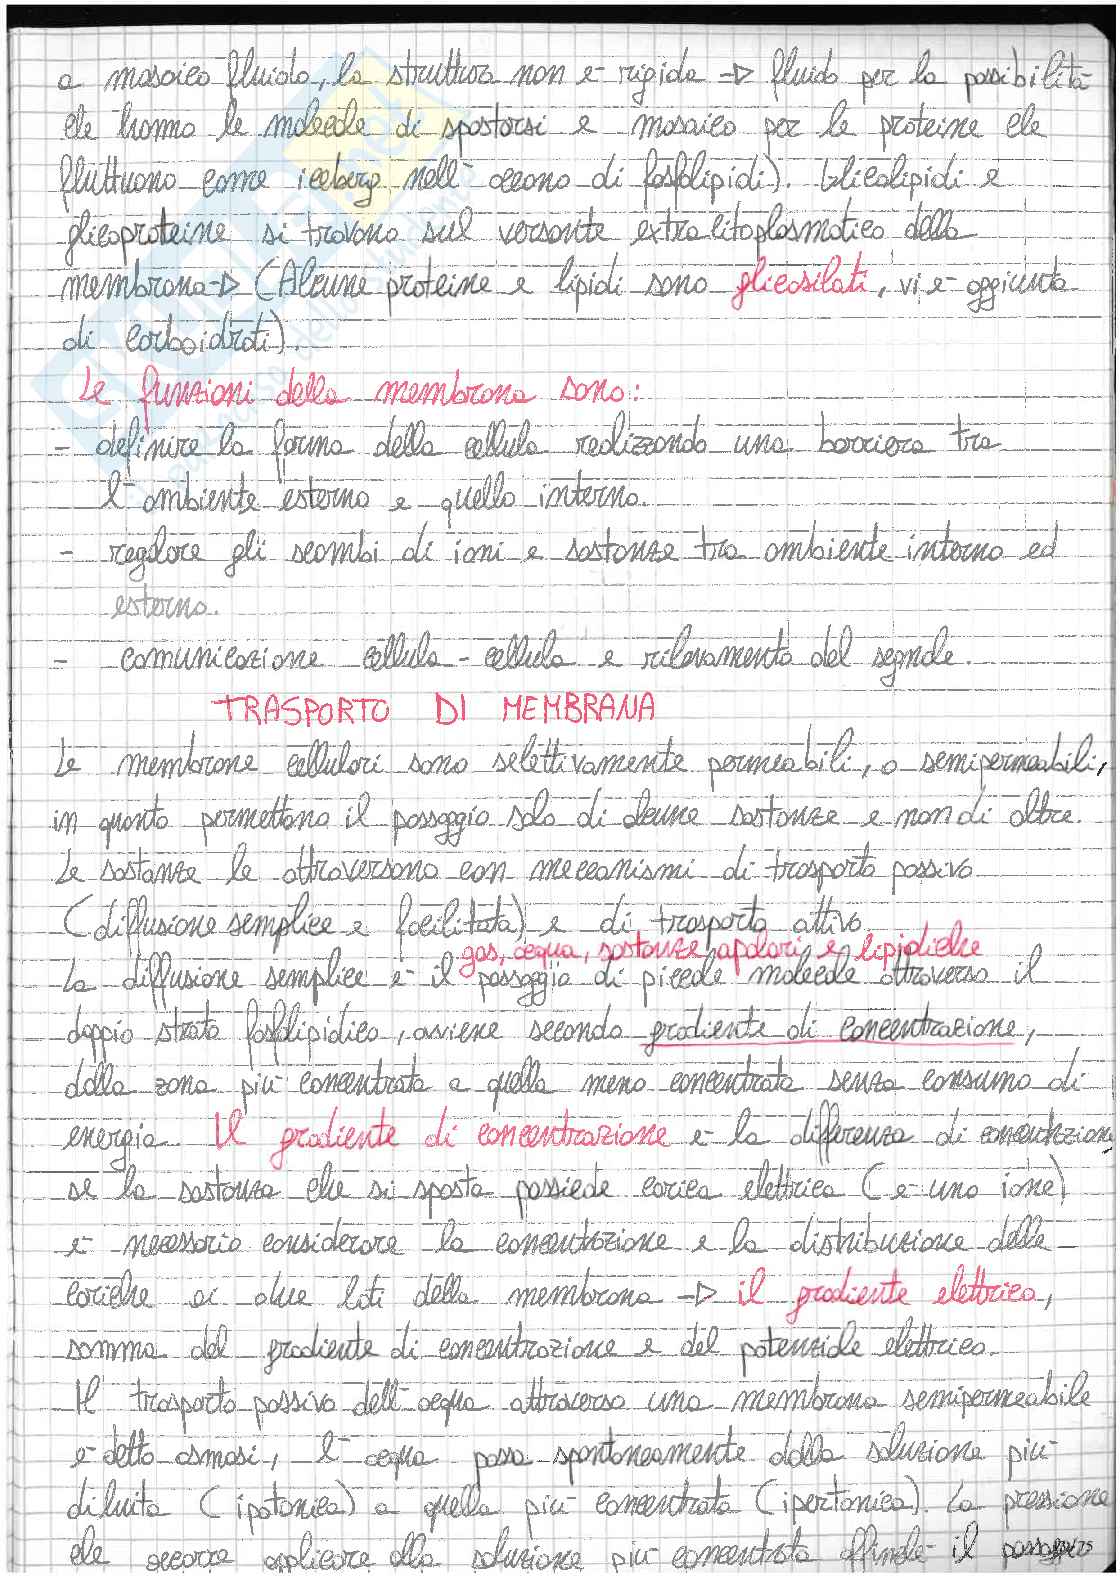 a mosaico fluido, la struttura non è rigida → fluido per la possibilità
che hanno le molecole di spostarsi e mosaico per le proteine che
fluttuano come iceberg nell'oceano di fosfolipidi). Glicolipidi e
glicoproteine si trovano sul versante extracitoplasmatico della
membrana → (Alcune proteine e lipidi sono glicosilati, vi è aggiunta
di carboidrati).
Le funzioni della membrana sono:
- definire la forma della cellula realizzando una barriera tra
l'ambiente esterno e quello interno.
- regolare gli scambi di ioni e sostanze tra ambiente interno ed
esterno.
- comunicazione cellula-cellula e rilevamento del segnale.
TRASPORTO DI MEMBRANA
Le membrane cellulari sono selettivamente permeabili, o semipermeabili,
in quanto permettono il passaggio solo di alcune sostanze e non di altre.
Le sostanze le attraversano con meccanismi di trasporto passivo
(diffusione semplice e facilitata) e di trasporto attivo.
gas, acqua, sostanze apolari e lipidiche
La diffusione semplice è il passaggio di piccole molecole attraverso il
doppio strato fosfolipidico, avviene secondo gradiente di concentrazione,
dalla zona più concentrata a quella meno concentrata senza consumo di
energia. Il gradiente di concentrazione è la differenza di concentrazione,
se la sostanza che si sposta possiede carica elettrica (è uno ione)
è necessario considerare la concentrazione e la distribuzione delle
cariche ai due lati della membrana → il gradiente elettrico,
somma del gradiente di concentrazione e del potenziale elettrico.
Il trasporto passivo dell'acqua attraverso una membrana semipermeabile
è detto osmosi, l'acqua passa spontaneamente dalla soluzione più
diluita (ipotonica) a quella più concentrata (ipertonica). La pressione
che occorre applicare alla soluzione più concentrata affinché il passaggio